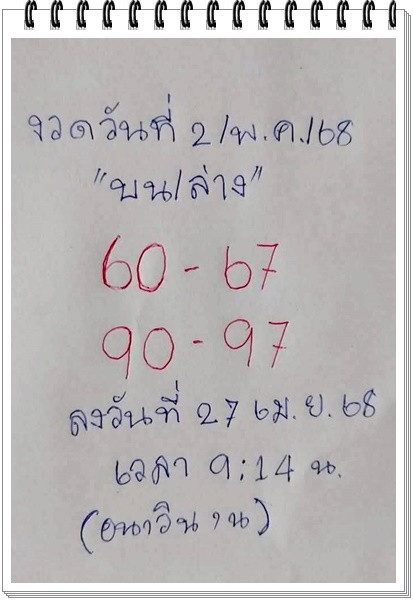 งวดวันที่ 2/พ.ค./68
"บน/ล่าง"
60 - 67
90 - 97
ลงวันที่ 27 เม.ย. 68
เวลา 9:14 น.